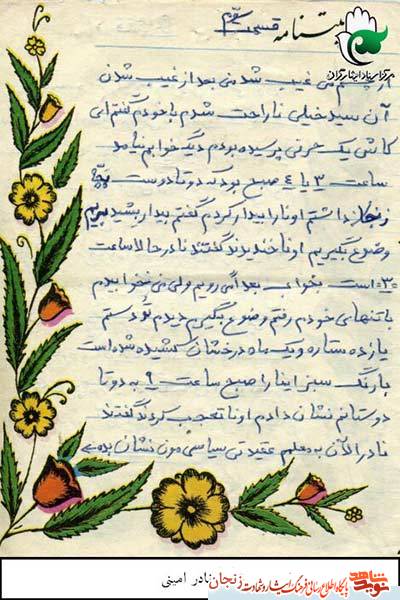 بستنامه قسمت سوم
مرکز اسناد ایثارگران
از چشم می غیب شد منی بعد از غیب شدن
آن سید خیلی ناراحت شدم با خودم گفتم ای
کاش یک حرفی پرسیده بودم دیگه خوابم نیامد
ساعت ۳ یا ٤ صبح بود که دو تا دوست بچه
زنجان داشتم اونا را بیدار کردم گفتم بیدار بشید بریم
وضوع بگیریم اونا خندیدند گفتند نادر حالا ساعت
۳ است بخواب بعداً می رویم ولی منی نخوابیدم
با تنهای خودم رفتم وضوع بگیرم دیدم تو دستم
یازده ستاره و یک ماه درخشان کشیده شده است
با رنگ سبز اینا را صبح ساعت ۹ به دو تا
دوستانم نشان دادم اونا تعجب کردند گفتند
نادر الآن به معلم عقیدتی سیاسی مون نشان بده
نوید شاهد
پایگاه اطلاع رسانی فرهنگ ایثار و شهادت زنجان
نادر امینی